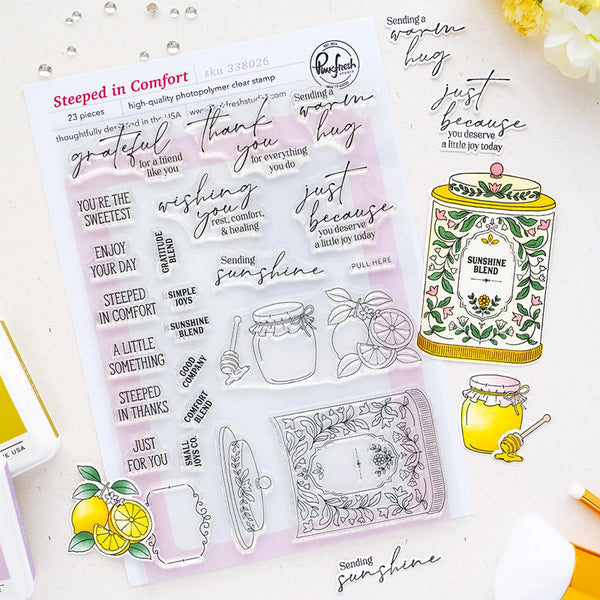 Steeped in Comfort
sku 338026
23 pieces
high-quality photopolymer clear stamp
thoughtfully
in the USA
Pinkfresh
STUDIO
grateful
for a friend
like you
thank
you
for everything
you do
Sending a
warm
hug
YOU'RE THE
SWEETEST
wishing
you
rest, comfort,
& healing
just
because
you deserve
a little joy today
ENJOY
YOUR DAY
GRATITUDE
BLEND
Sending
sunshine
PULL HERE
STEEPED
IN COMFORT
SIMPLE
JOYS
SUNSHINE
BLEND
A LITTLE
SOMETHING
GOOD
COMPANY
STEEPED
IN THANKS
COMFORT
BLEND
JUST
FOR YOU
SMALL
JOYS CO.
Sending a
warm
hug
just
because
you deserve
a little joy today
SUNSHINE
BLEND
Sending
sunshine
E USA